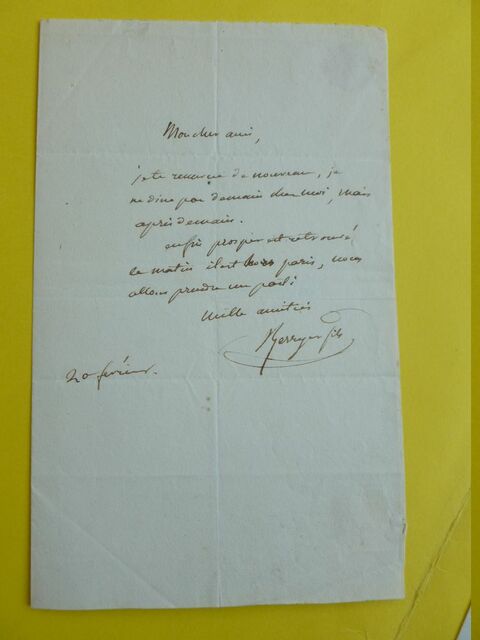 Mon cher ami,
je te remercie de nouveau, je
ne dine pas demain chez moi, mais
après demain.
enfin prosper est retrouvé
le matin il est hors paris, nous
allons prendre un parti
Mille amitiés
Berryer fils
20 février.